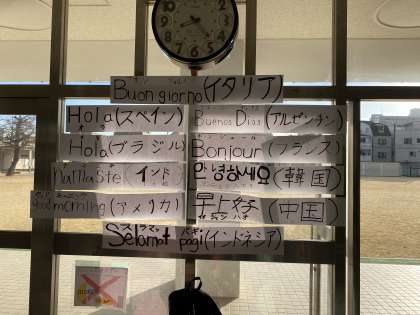 Buon giorno(イタリア)
Hola(スペイン)
Buenos Dias(アルゼンチン)
Hola(ブラジル)
Bonjour(フランス)
namaste(インド)
안녕하세요(韓国)
(アメリカ)
早上好(中国)
Selamat pagi(インドネシア)